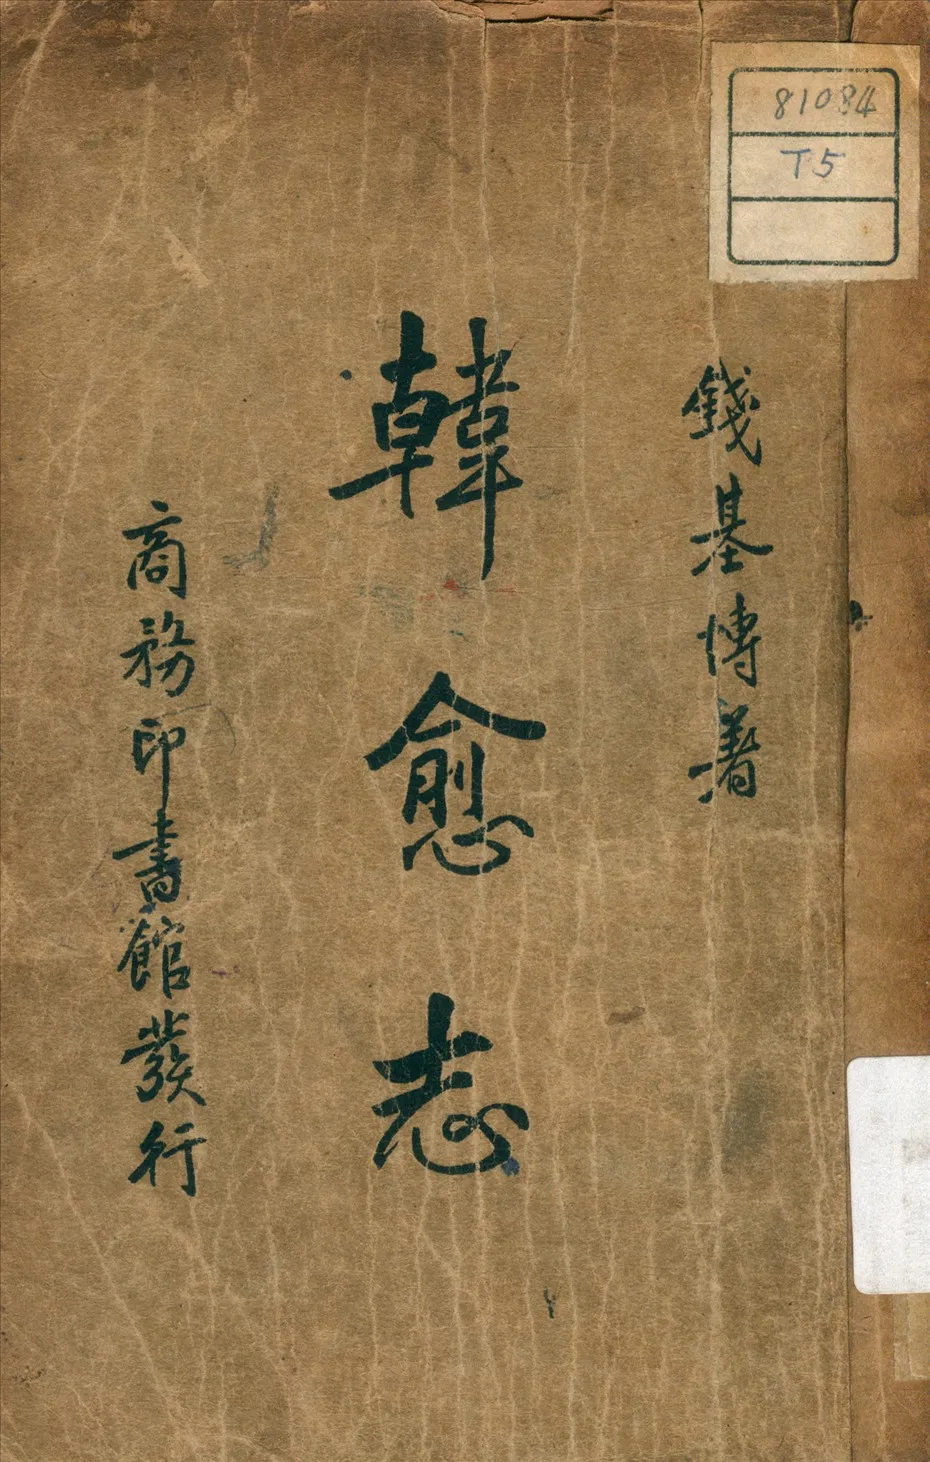 81084
T5
錢基博著
韓愈志
商務印書館發行